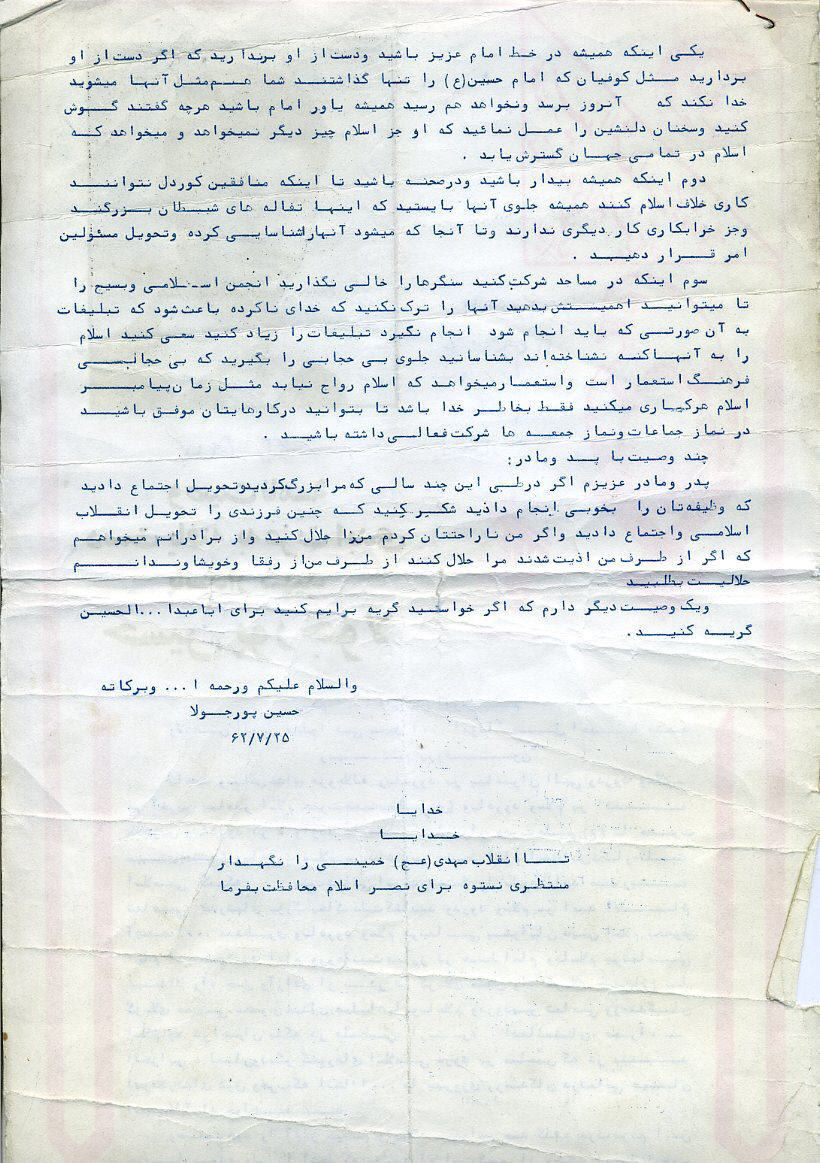 یکی اینکه همیشه در خط امام عزیز باشید ودست از او برندارید که اگر دست از او
بردارید مثل کوفیان که امام حسین(ع) را تنها گذاشتند شما هم مثل آنها میشوید
خدا نکند که آنروز برسد ونخواهد هم رسید همیشه یاور امام باشید هرچه گفتند گوش
کنید وسخنان دلنشین را عمل نمائید که او جز اسلام چیز دیگر نمیخواهد و میخواهد که
اسلام در تمامی جهان گسترش یابد .
دوم اینکه همیشه بیدار باشید ودرصحنه باشید تا اینکه منافقین کوردل نتوانند
کاری خلاف اسلام کنند همیشه جلوی آنها بایستید که اینها تفاله های شیطان بزرگند
وجز خرابکاری کار دیگری ندارند وتا آنجا که میشود آنهاراشناسایی کرده وتحویل مسئولین
امر قرار دهید .
سوم اینکه در مساجد شرکت کنید سنگرهارا خالی نگذارید انجمن اسلامی وبسیج را
تا میتوانید اهمیتش بدهید آنها را ترک نکنید که خدای ناکرده باعث شود که تبلیغات
به آن صورتی که باید انجام شود انجام نگیرد تبلیغات را زیاد کنید سعی کنید اسلام
را به آنهاکه نشناخته‌اند بشناسانید جلوی بی حجابی را بگیرید که بی حجابی
فرهنگ استعمار است واستعمارمیخواهد که اسلام رواج نیابد مثل زمان پیامبر
اسلام هرکاری میکنید فقط بخاطر خدا باشد تا بتوانید درکارهایتان موفق باشید
در نماز جماعات ونماز جمعه ها شرکت فعالی داشته باشید .
چند وصیت با پد ومادر:
پدر ومادر عزیزم اگر درطی این چند سالی که مرا بزرگ کردید وتحویل اجتماع دادید
که وظیفه‌تان را بخوبی انجام دادید شکر کنید که چنین فرزندی را تحویل انقلاب
اسلامی واجتماع دادید واگر من ناراحتتان کردم مرا حلال کنید واز برادرانم میخواهم
که اگر از طرف من اذیت شدند مرا حلال کنند از طرف من از رفقا وخویشاوندانم
حلالیت بطلبید
ویک وصیت دیگر دارم که اگر خواستید گریه برایم کنید برای اباعبدا...الحسین
گریه کنید.
والسلام علیکم ورحمه ا... وبرکاته
حسین پورجولا
۶۲/۷/۲۵
خدایا
خدایا
تا انقلاب مهدی(عج) خمینی را نگهدار
منتظری نستوه برای نصر اسلام محافظت بفرما